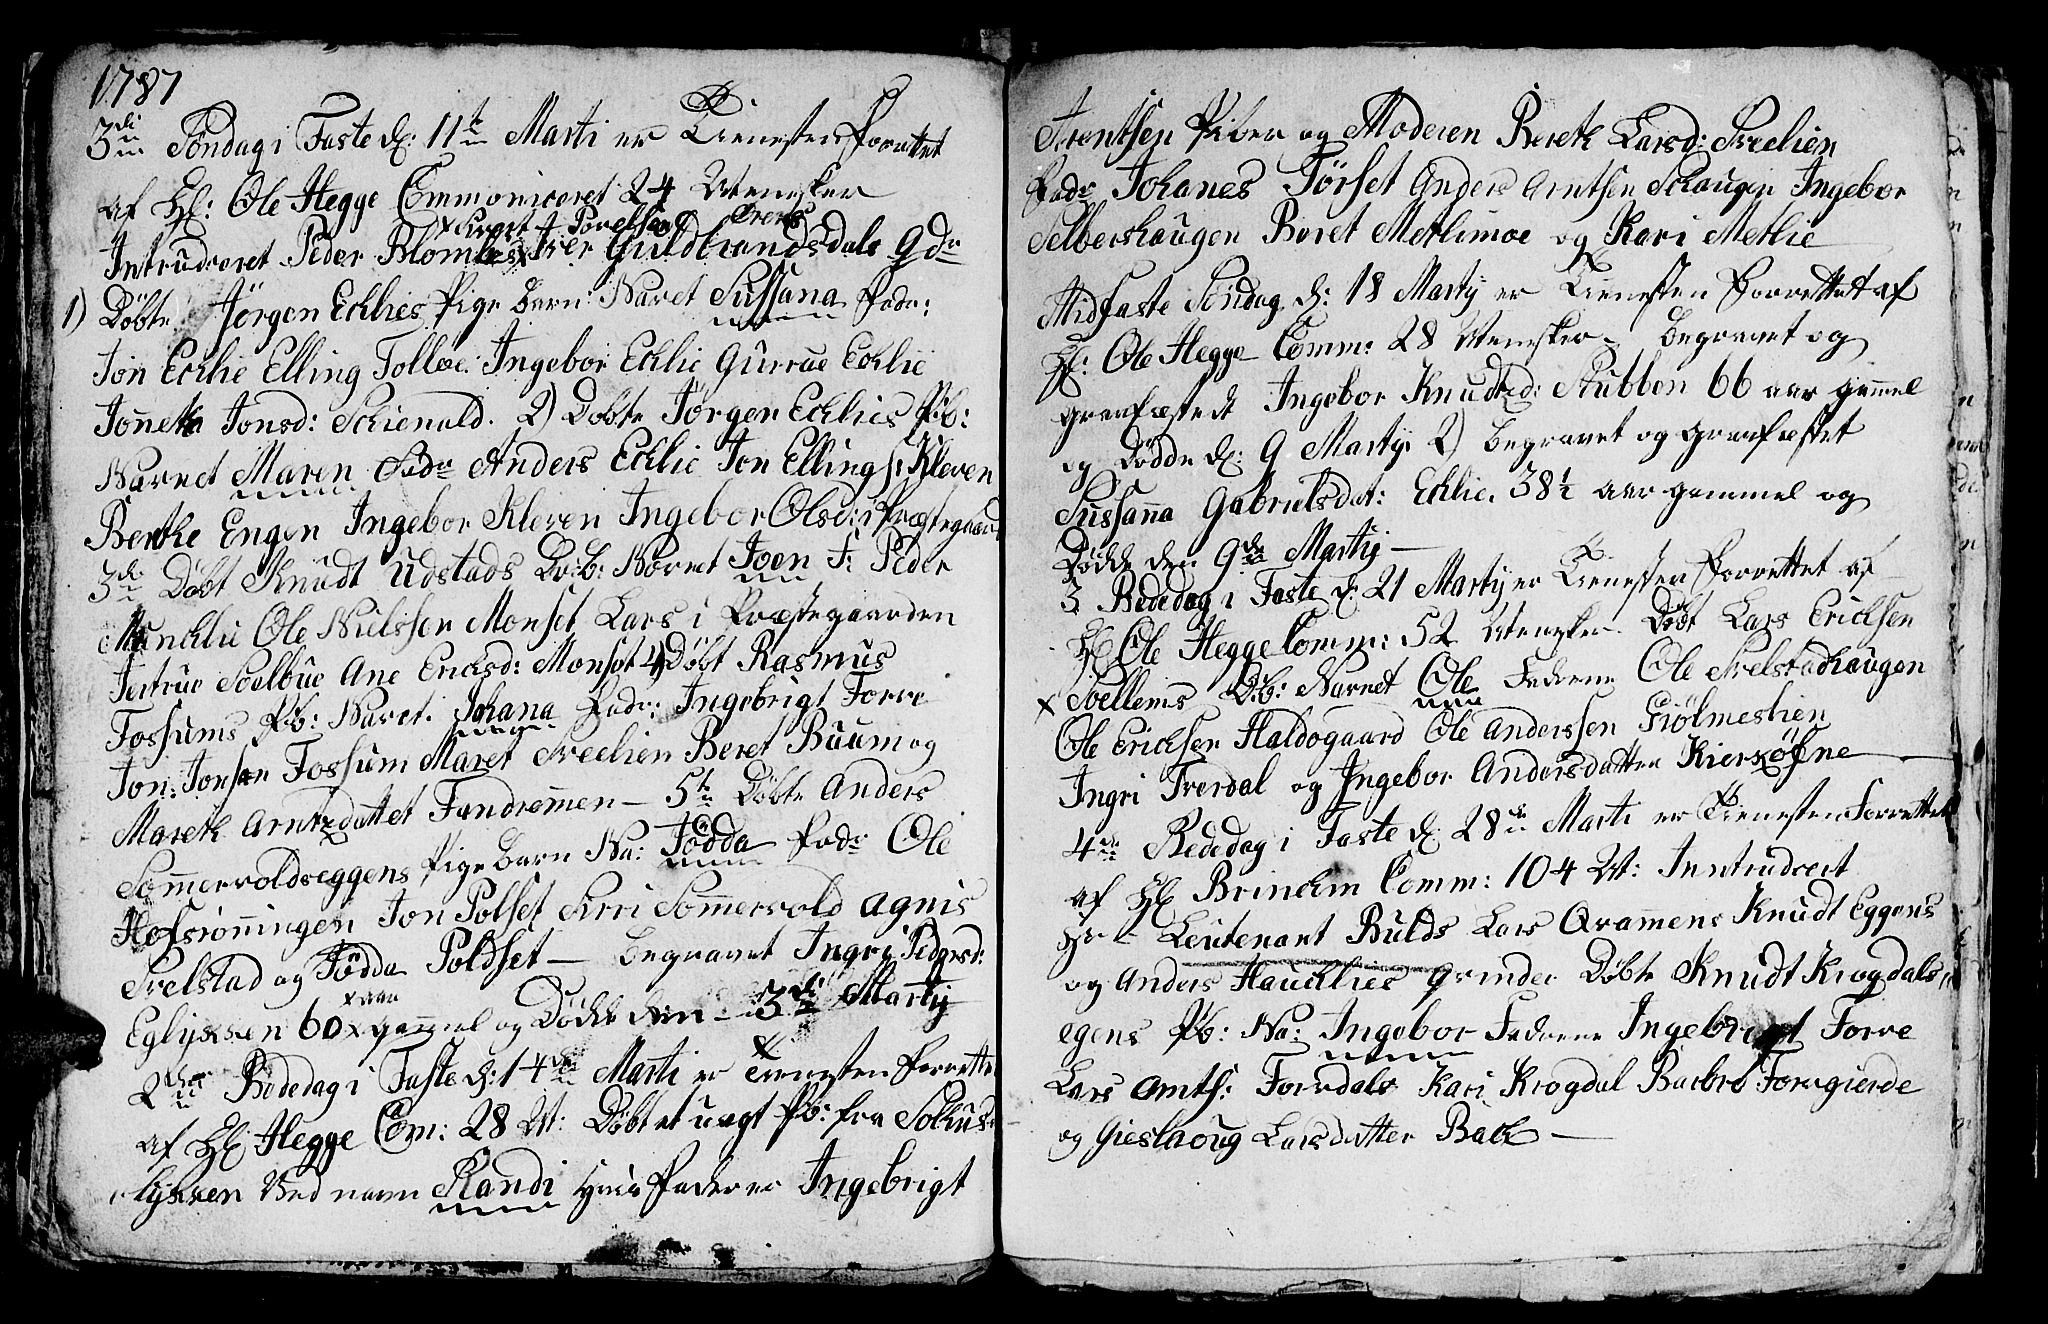 1787
3die Söndag i Faste d: 11te Marti er Tienesten Forrettet
af Hl: Ole Hegge Commoniceret 24 Menesker
Intrudceret Peder Blomlies Iver Guldbrandsdals qdr
1) Döbte Jörgen Ecklies Pige barn: Navnet Sussana Fadr:
Jon Ecklie Elling Folloe: Ingebor Ecklie Gurrue Ecklie
Joneth Jonsd: Schienald. 2) Döbte Jörgen Ecklies Pb:
Navnet Maren Fadr Anders Ecklie Jon Ellings: Kleven
Berthe Engen Ingebor Kleven Ingebor Olsd: i Præstegaard
3die Döbt Knudt Udstads Dr:b: Navnet Joen F: Peder
Muncklie Ole Nielssen Monset Lars i Præstegaarden
Jertrue Soelbue Ane Ericksd: Monset 4) Döbt Rasmus
Fossums Pb: Navnet. Johana Fadr: Ingebrigt Forre
Jon: Jonsen Fossum Maret Svelien Beret Buum og
Mareth Arntzdattet Fandremmen — 5te Döbte Anders
Sommervoldseggens Pige barn Na: Födda Fadr Ole
Hofsrönningen Jon Polset Sirri Sommervold Agnis
Svelstad og Födda Poldset — begravet Ingri Pedersd:
Eglyksen 60 aar gammel og Dödde den — 3die Martij
2den Bededag i Faste d: 14de Marti er Tienesten Forrettet
af Hl Hegge Com: 28 M: Döbt et uægt Pb: fra Solhus-
lyksen Ved navn Randi hvis Fader er Ingebrigt
Arentsen Piber og Moderen Bereth Larsd: Svelien
Fadr Johanes Törset Anders Arntsen Schaugen Ingebor
Selbershaugen Beret Metlimoe og Kari Metlie
Midfaste Söndag d: 18 Martij er Tienesten Forrettet af
Hl: Ole Hegge Comm: 28 Menesker — begravet og
graufæstedt Ingebor Knudtzd: Stubben 66 aar gammel
og dödde d: 9 Martij 2) begravet og graufæstet
Sussanna Gabrielsdat: Ecklie. 38½ aar gammel og
Dödde den 9de Martij —
3 Bededag i Faste d: 21 Martij er Tienesten Forrettet af
Hl Ole Hegge Comm: 52 Menesker. Döbt Lars Ericksen
x Soellems Db: Navnet Ole Faderne Ole Svelstadhaugen
Ole Ericksen Haldogaard Ole Anderssen Giölmeslien
Ingri Trerdal og Ingebor Andersdatter Kiersöfne —
4de Bededag i Faste d: 28de Marti er Tienesten Forrettet
af Hl Brinchm Comm: 104 M: Inntrudceit
Hr — Leutenant Bulds Lars Qvammens Knudt Eggens
og Anders Haucklies qvinder Döbte Knudt Krogdals-
egens Pb: Na: Ingebor Faderne Ingebrigt Forre
Lars Arnts: Foredals Kari Krogdal Barbro Foregierde
og Gieslaoug Larsdatter Bach —